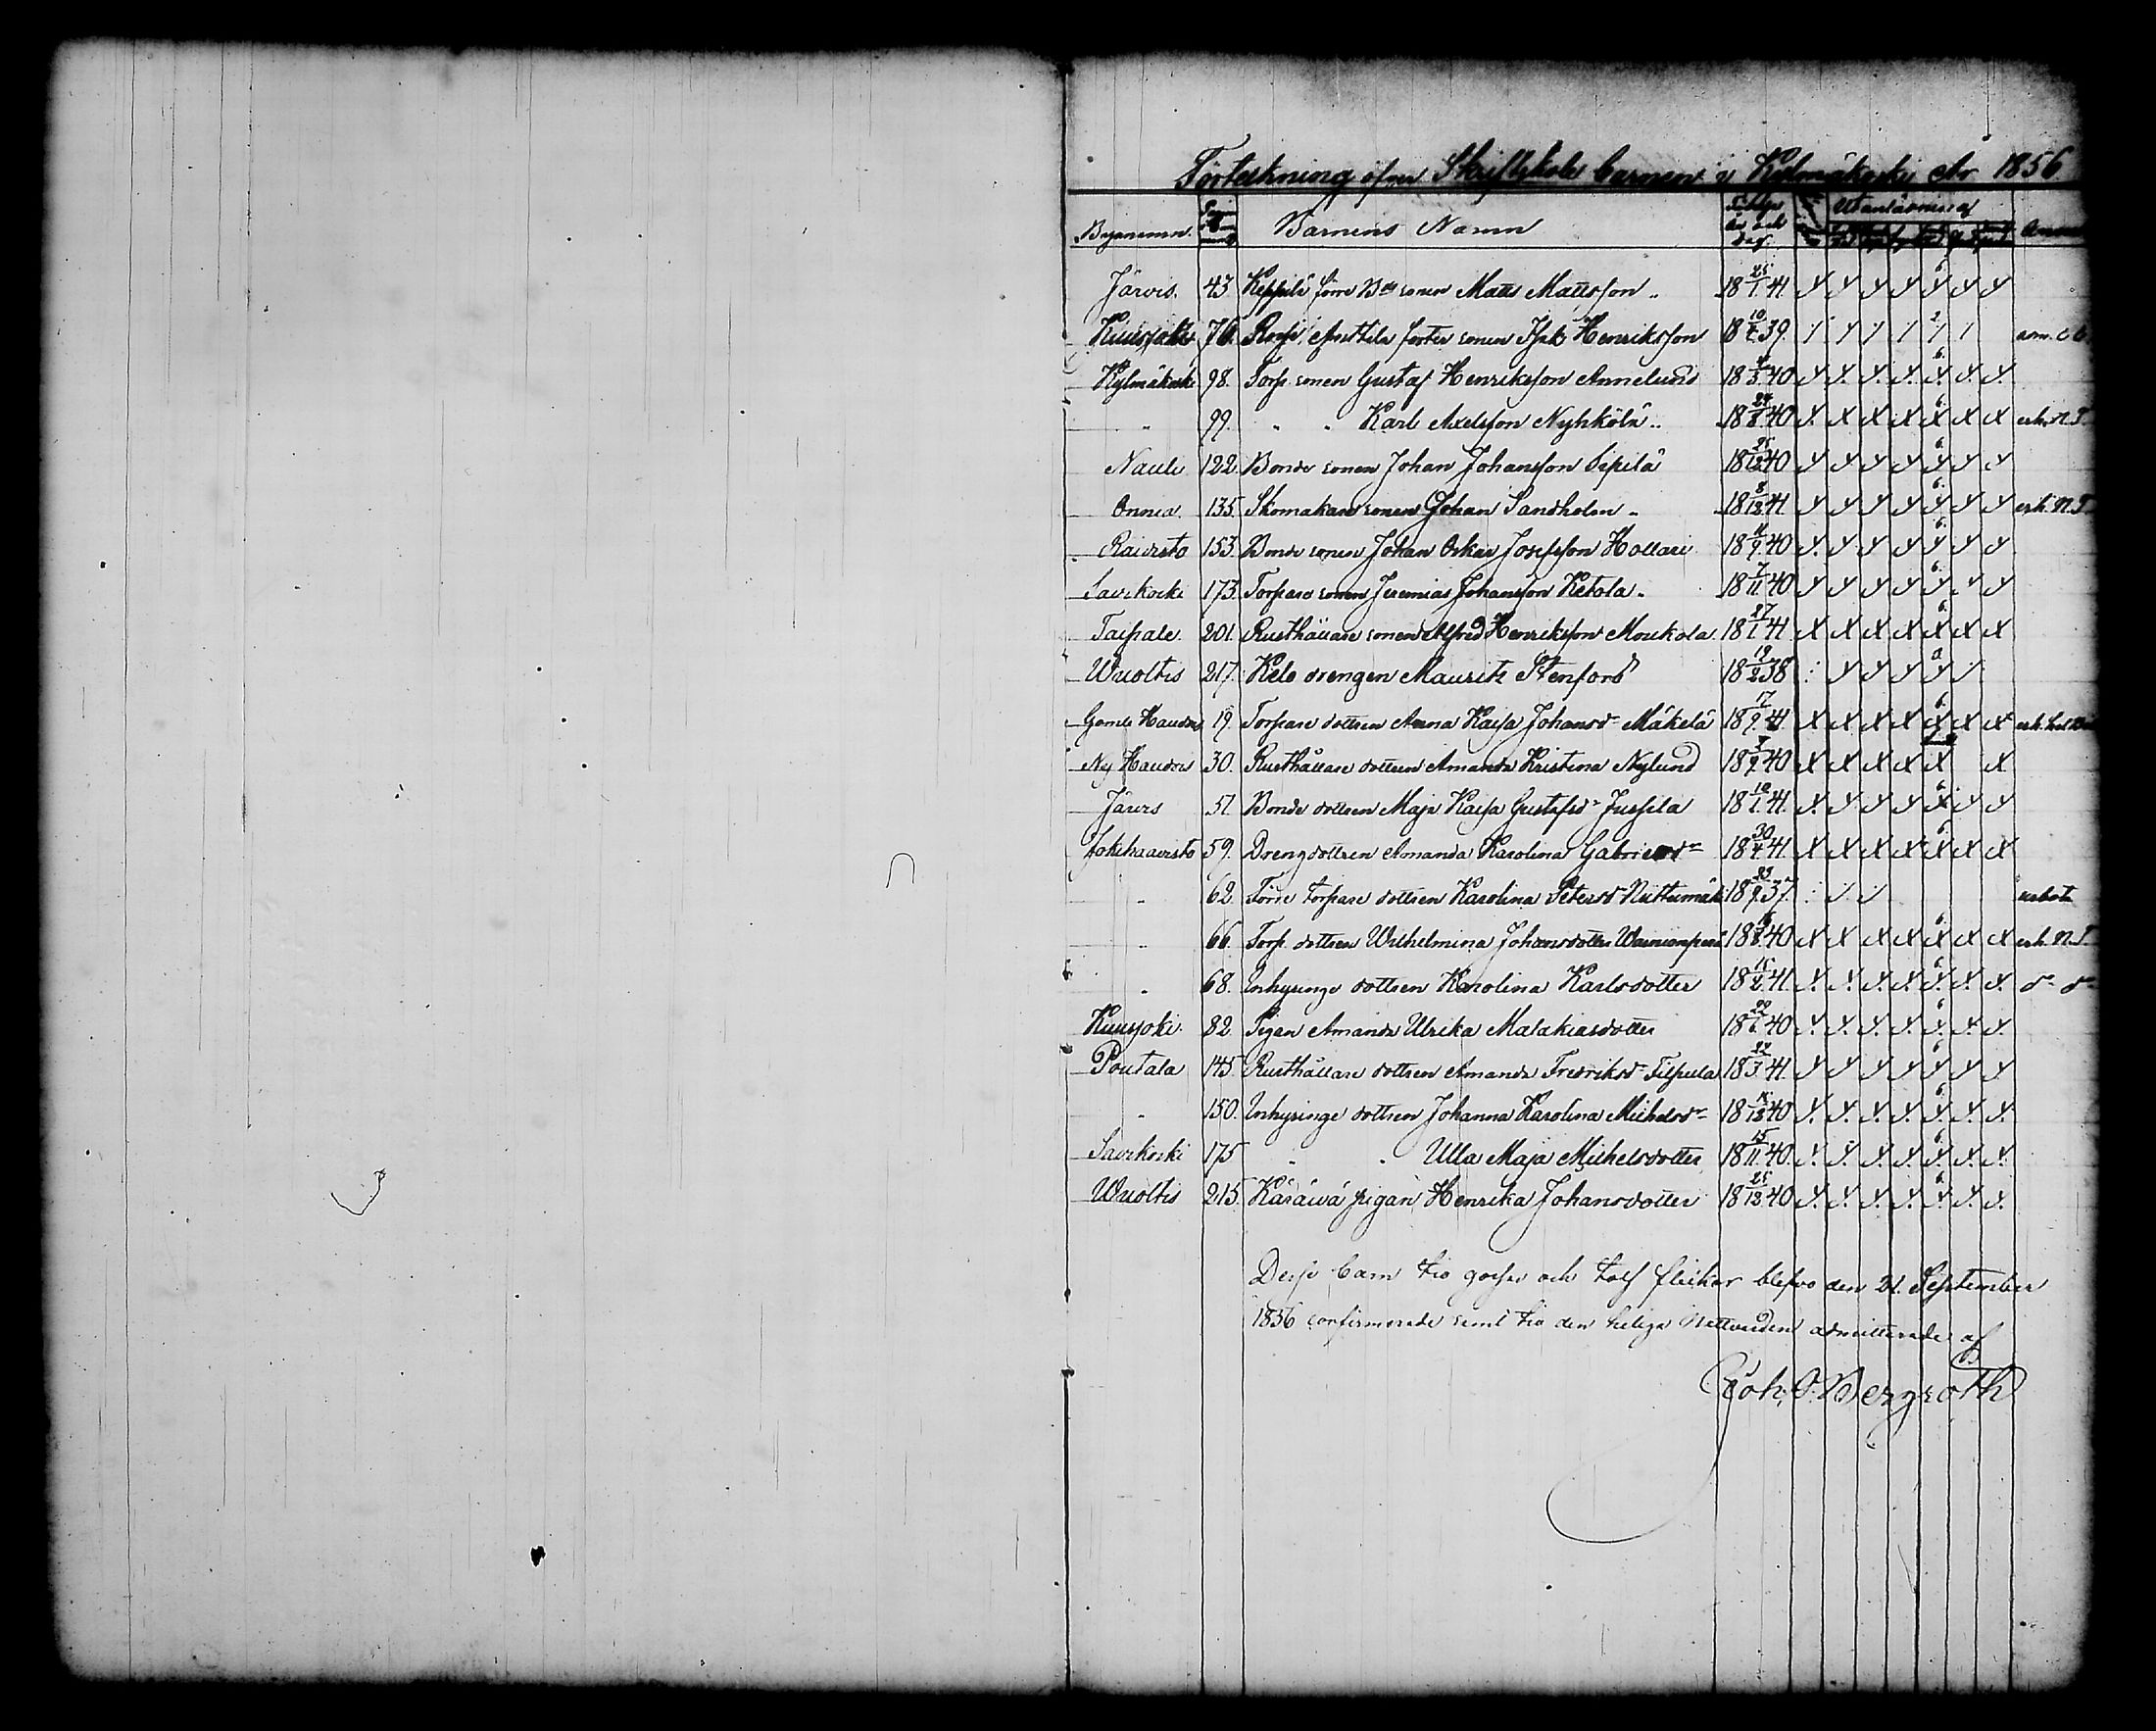 Förteckning öfver Skriftskole barnen i Kylmäkoski År 1856
Byanamn. Barnens Namn Födelse År och dag Utanläsning af Anm
Järvis. 43 Keppilä förre Bde sonen Matts Mattsson 18 25/1. 41.
Kuusjoki 76. Isak Henriksson 18 39.
Kylmäkoski 98. Torp. sonen Gustaf Henriksson Annelund 18 40
" 99. " " Karl Axelsson Nyhkölä 18 24/8. 40 erh. N.T.
Nauli 122. Bonde sonen Johan Johansson Sipilä 18 25/12. 40
Onnia. 135. Skomakare sonen Johan Sandholm 18 8/12. 41 erh. N.T.
Raivisto 153. Bonde sonen Johan Oskar Josefsson Hollari 18 11/9. 40
Savikoski 173. Torpare sonen Jeremias Johansson Ketola. 18 7/11. 40
Taipale. 201. Rusthållare sonen Alfred Henriksson Moukola. 18 27/1. 41
Wuoltis 217. Kelo drengen Mauritz Stenfors 18 19/2. 38
Gamla Haudois 19. Torpare dottren Anna Kajsa Johansdr Mäkelä 18 17/9. 41.
Ny Haudois 30. Rusthållare dottren Amanda Kristina Nylund 18 40
Järvis 51. Bonde dottren Maja Kajsa Gustafsdr Jussila 18 10/1. 41.
Jokihaavisto 59. Drengdottren Amanda Karolina Gabrielsdr 18 30/4. 41.
" 62. Förre torpare dottren Karolina Petersdr 18 23/9. 37.
" 66. Torp. dottren Wilhelmina Johansdotter Wainionpää 18 40 erh. N.T.
" 68. Inhysinge dottren Karolina Karlsdotter 18 15/2. 41. do do
Kuusjoki. 82. Pigan Amanda Ulrika Malakiasdotter 18 40
Poutala 145. Rusthållare dottren Amanda Fredriksdr Tilpula 18 22/3. 41.
" 150. Inhysinge dottren Johanna Karolina Michelsdr 18 40
Savikoski 175 " " Ulla Maja Michelsdotter 18 15/11. 40.
Wuoltis 215. Käräivä pigan Henrika Johansdotter 18 25/12. 40
Desse barn tio gossar och tolf flickor blefvo den 21. September
1856 confirmerade samt till den heliga Nattvarden admitterade af
Joh. O. Bergroth